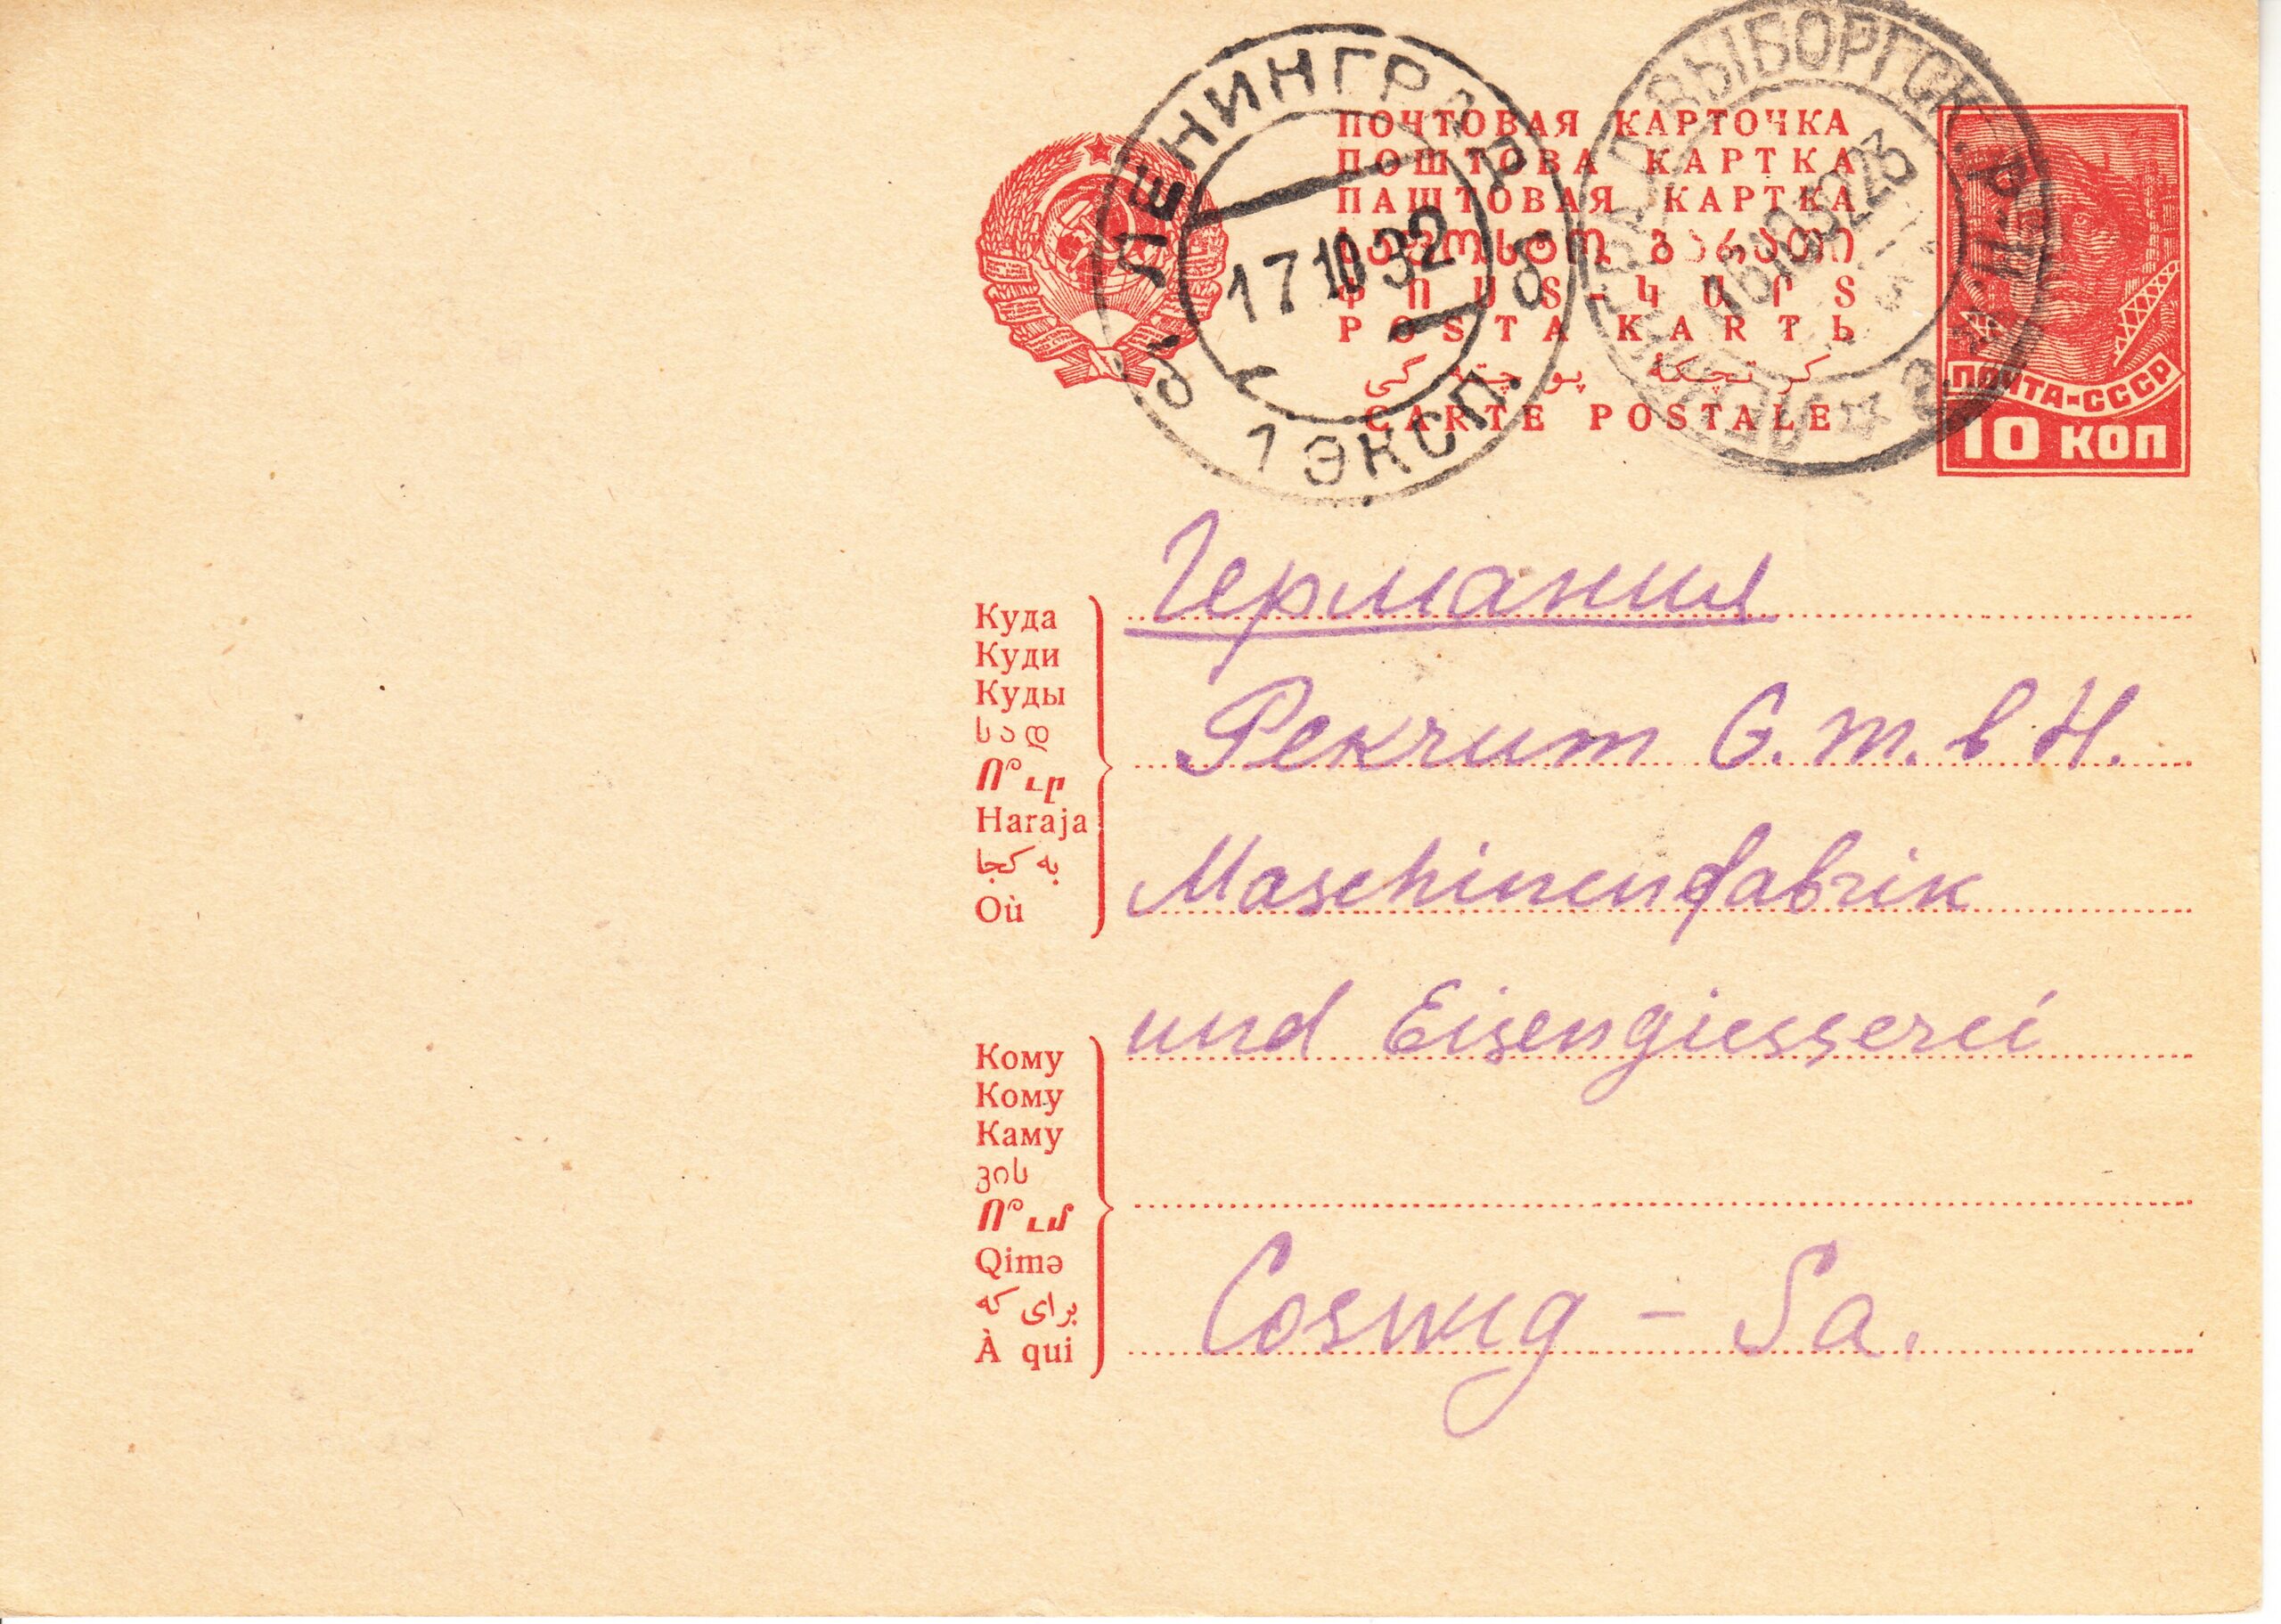 ПОЧТОВАЯ КАРТОЧКА
ПОШТОВА КАРТКА
ПАШТОВАЯ КАРТКА
საფოსტო ბარათი
ՓՈՍՏ-ԿԱՐՏ
POSTA KARTЬ
CARTE POSTALE
ЛЕНИНГРАД
17 10 32
1 ЭКСП.
ВЫБОРГСК. Р-Н
16 10 32 23
ПОЧТА-СССР
10 КОП
Куда
Куди
Куды
სად
Ո՞ւր
Haraja
به کجا
Où
Германия
Pekrum G.m.b H.
Maschinenfabrik
und Eisengiesserei
Кому
Кому
Каму
ვის
Ո՞ւմ
Qimə
برای که
À qui
Coswig - Sa.